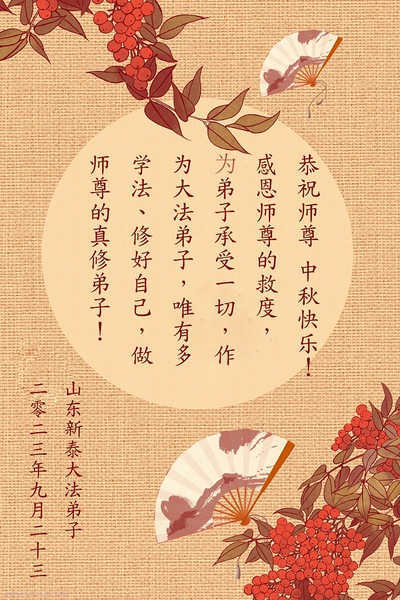 恭祝师尊 中秋快乐！
感恩师尊的救度，
为弟子承受一切，作
为大法弟子，唯有多
学法、修好自己，做
师尊的真修弟子！
山东新泰大法弟子
二零二三年九月二十三